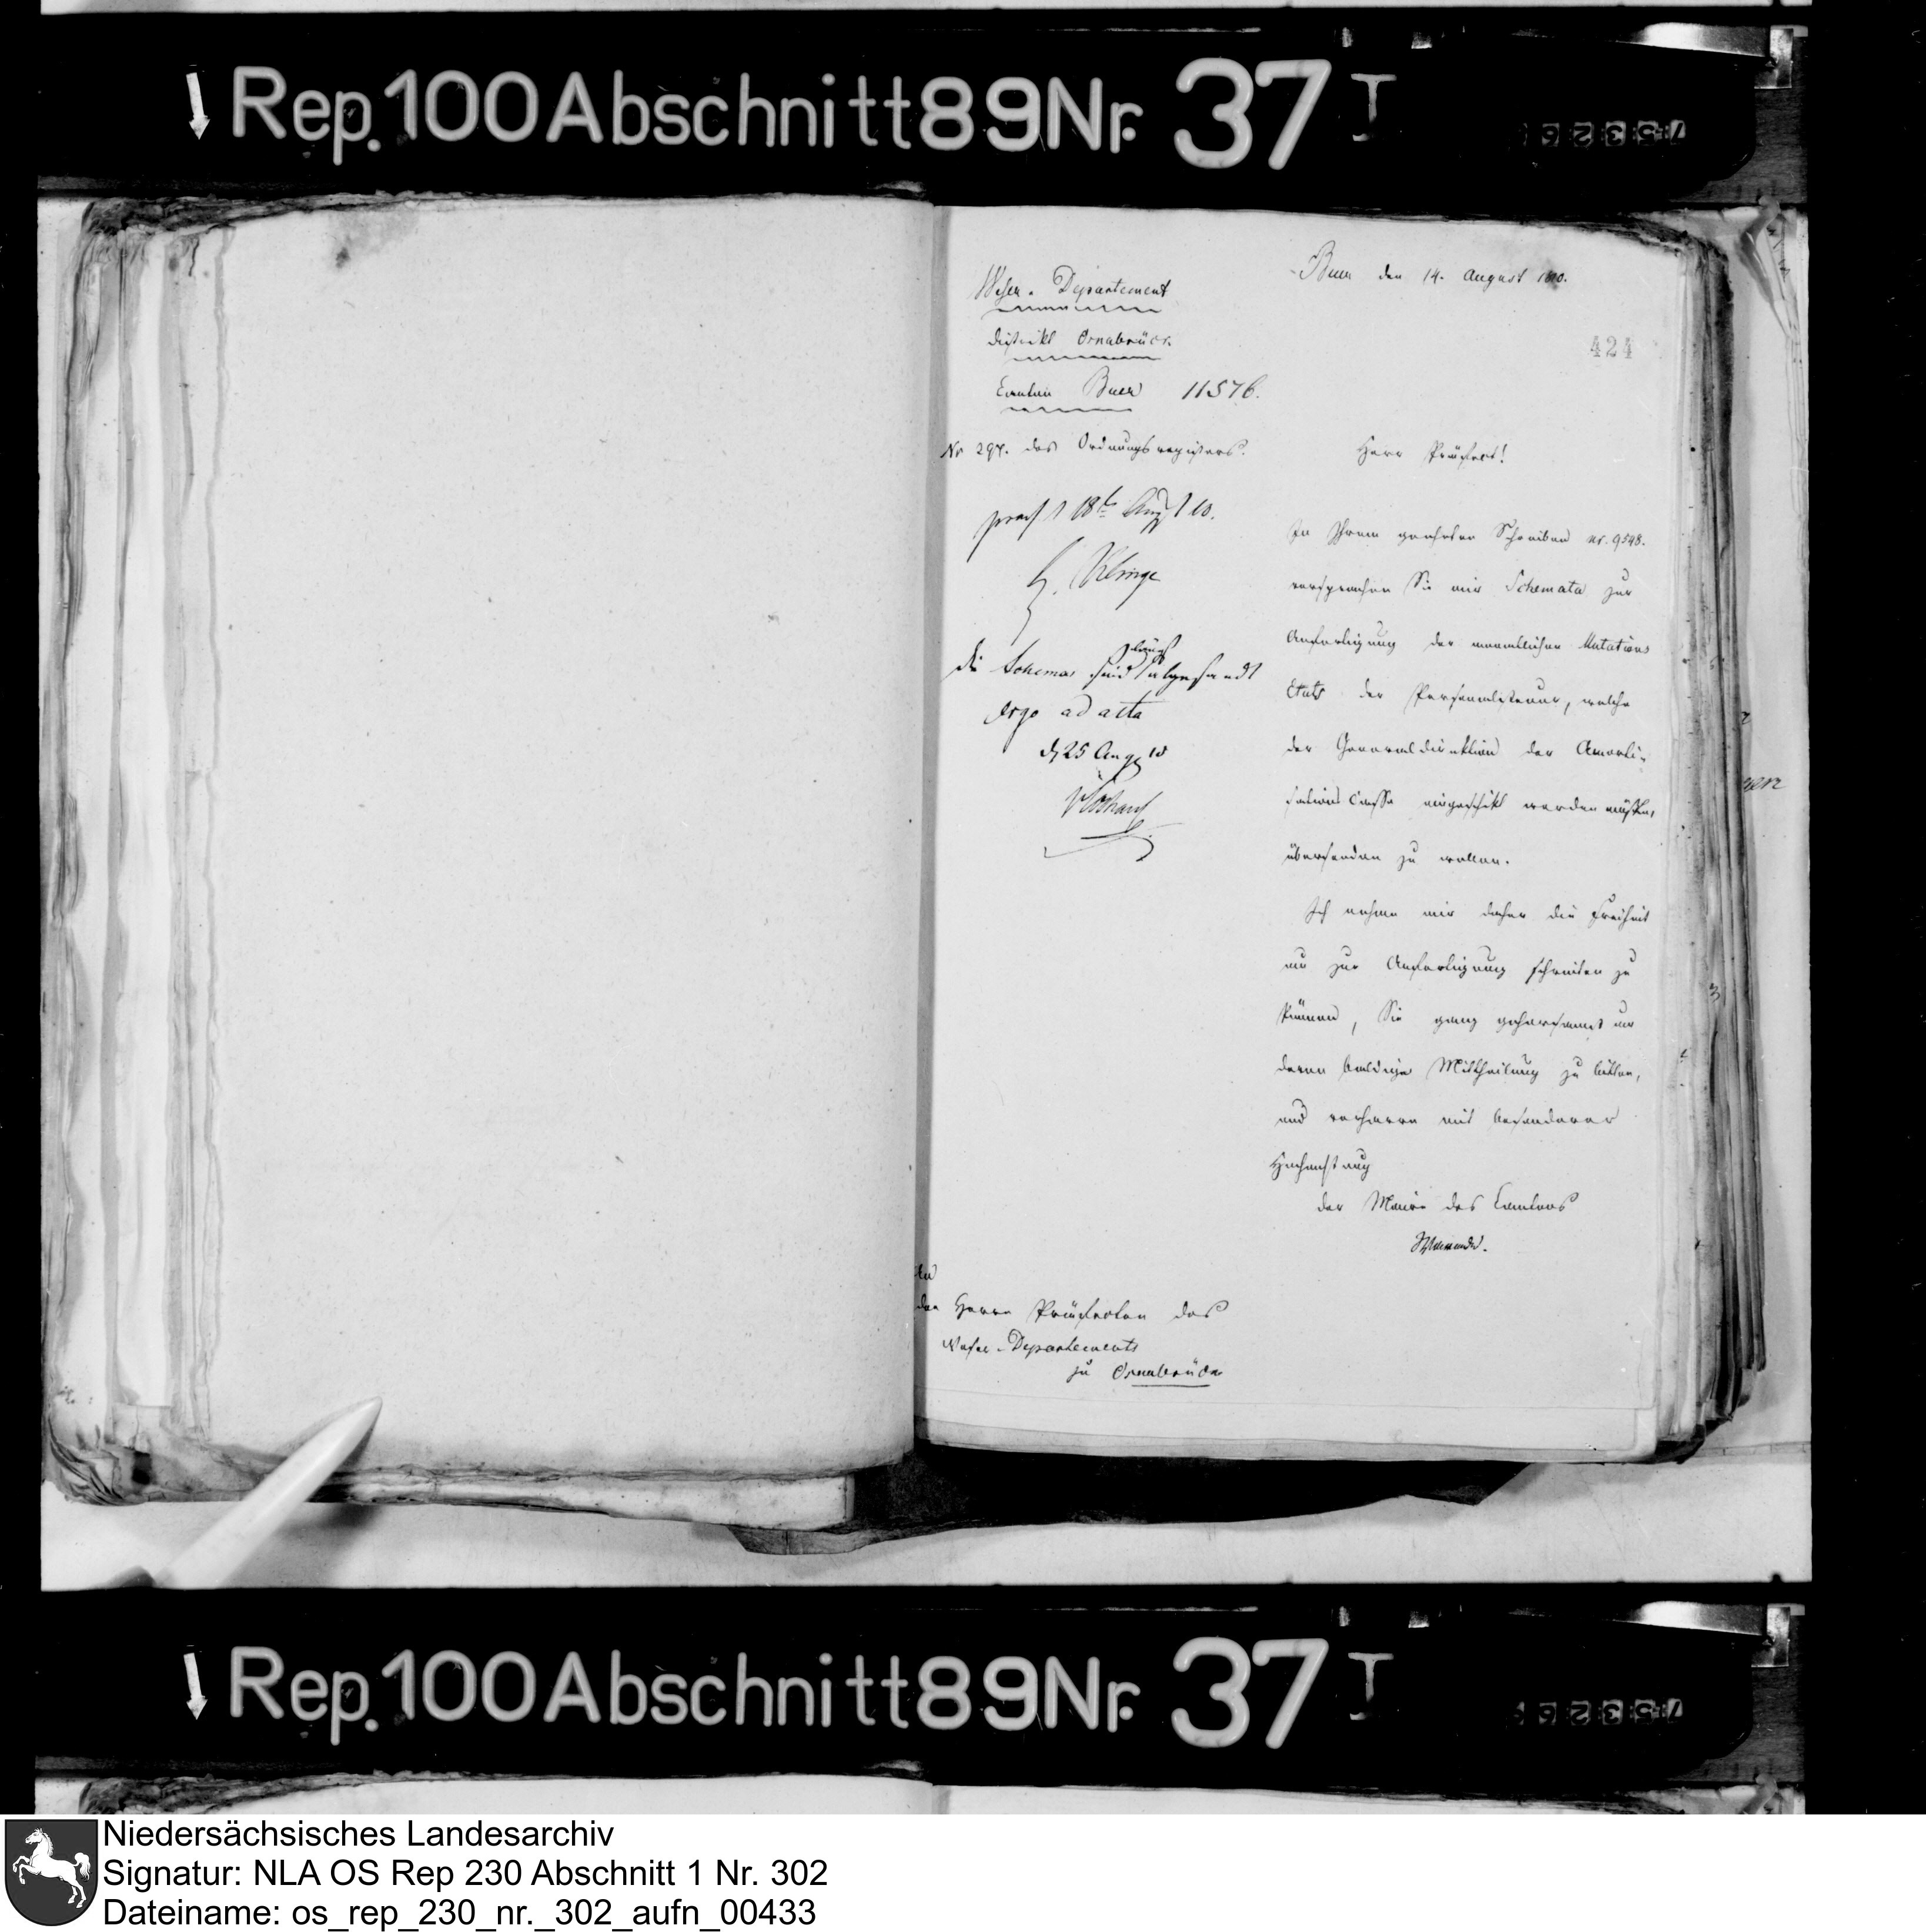 Rep. 100 Abschnitt 89 Nr. 37 I
75326
Weser-Departement
District Osnabrück
Canton Buer 11576.
Nr 297. des Ordnungsregisters.
Buer den 14. August 1810.
424
Herr Präfect!
praes d 18t Aug 10.
die Schemas sind längst abgesandt
ergo ad acta
d 25 Aug 10
In Ihrem geehrten Schreiben nr. 9548.
versprachen Sie mir Schemata zur
Anfertigung der monatlichen Mutations
Etats der Personalsteuer, welche
der Generaldirektion der Amorti-
sations Casse eingeschikt werden müssen,
übersenden zu wollen.
Ich nehme mir daher die Freiheit
um zur Anfertigung schreiten zu
können, Sie ganz gehorsamst um
deren baldige Mittheilung zu bitten,
und verharre mit besonderer
Hochachtung
der Maire des Cantons
An
den Herrn Präfecten des
Weser-Departements
zu Osnabrück
Rep. 100 Abschnitt 89 Nr. 37 I
75326
Niedersächsisches Landesarchiv
Signatur: NLA OS Rep 230 Abschnitt 1 Nr. 302
Dateiname: os_rep_230_nr._302_aufn_00433